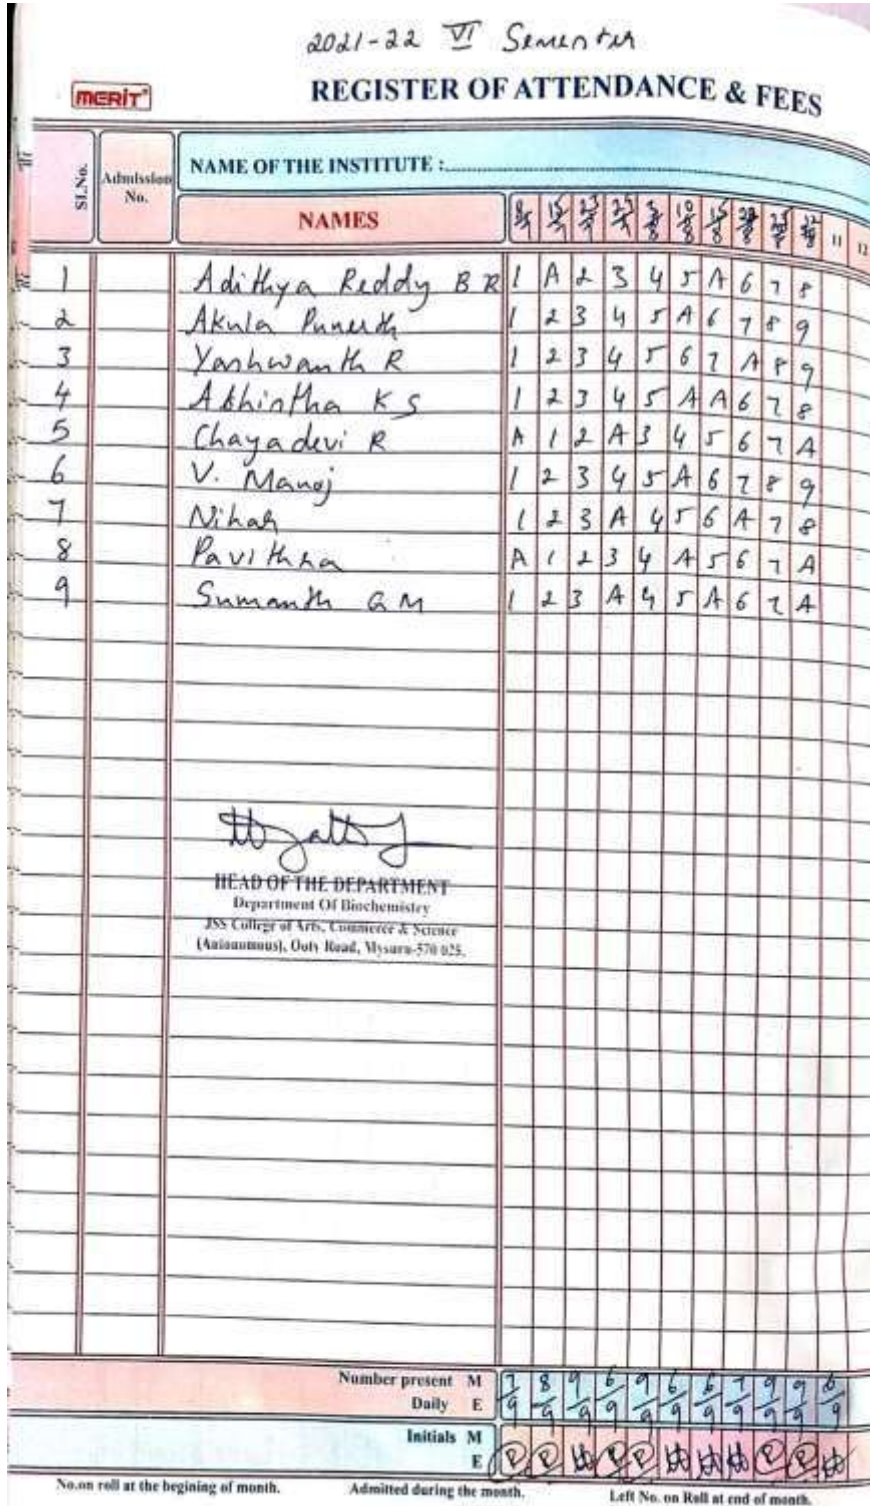 2021-22 VI Semester
MERIT
REGISTER OF ATTENDANCE & FEES
SL.No.
Admission No.
NAME OF THE INSTITUTE :
NAMES
11 12
1 Adithya Reddy B R 1 A 2 3 4 5 A 6 7 8
2 Akula Puneeth 1 2 3 4 5 A 6 7 8 9
3 Yashwanth R 1 2 3 4 5 6 7 A 8 9
4 Abhintha K S 1 2 3 4 5 A A 6 7 8
5 Chayadevi R A 1 2 A 3 4 5 6 7 A
6 V. Manoj 1 2 3 4 5 A 6 7 8 9
7 Nihar 1 2 3 A 4 5 6 A 7 8
8 Pavithra A 1 2 3 4 A 5 6 7 A
9 Sumanth G M 1 2 3 A 4 5 A 6 7 A
HEAD OF THE DEPARTMENT
Department Of Biochemistry
JSS College of Arts, Commerce & Science
(Autonomous), Ooty Road, Mysuru-570 025.
Number present M 7 8 9 6 9 6 6 7 9 9 6
Daily E 9 9 9 9 9 9 9 9 9 9 9
Initials M
E
No.on roll at the begining of month. Admitted during the month. Left No. on Roll at end of month.